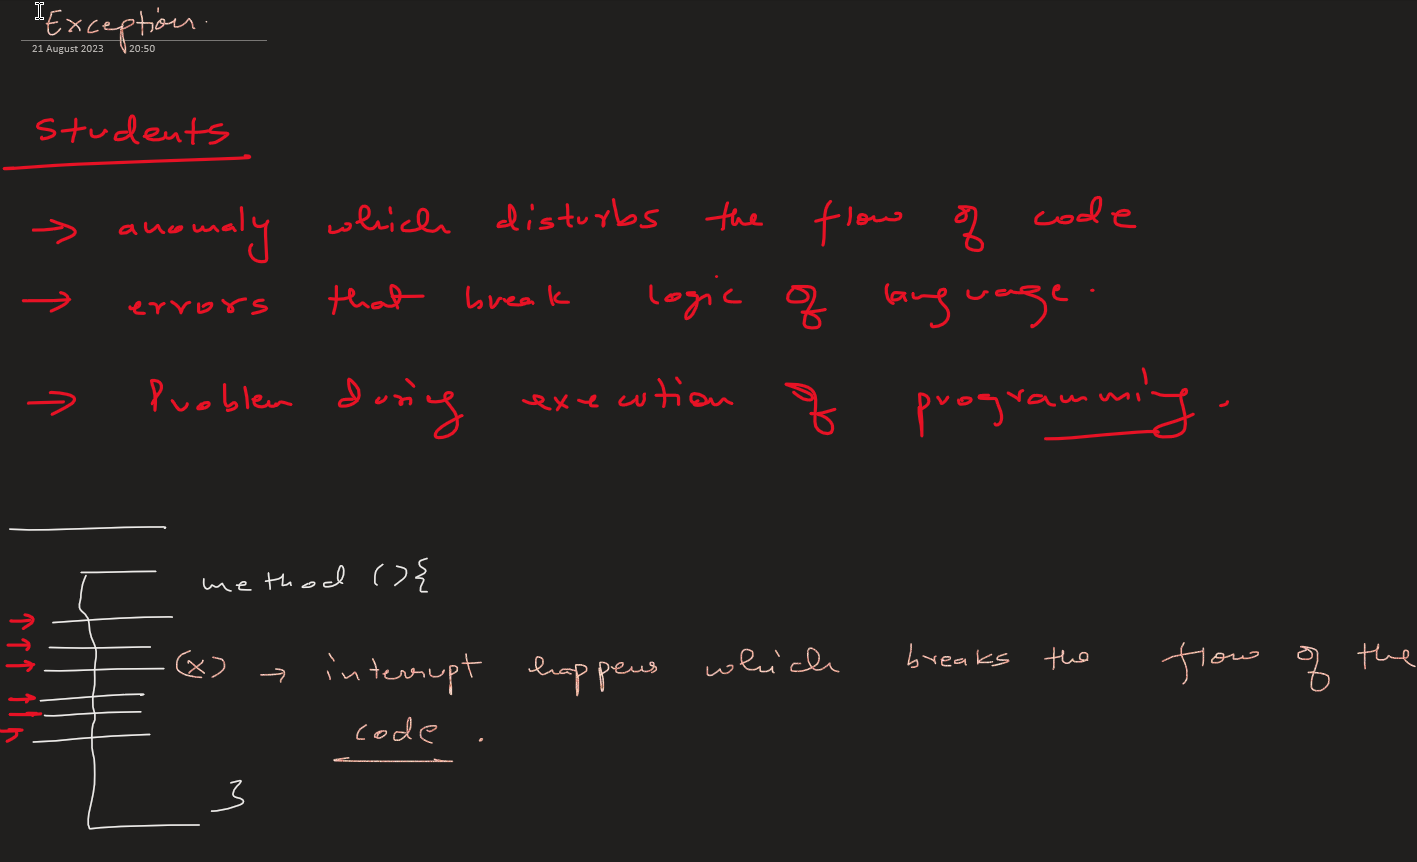 Exception.
21 August 2023 20:50
Students
→ anomaly which disturbs the flow of code
→ errors that break logic of language.
→ Problem during execution of programming.
method (){
(x) → interrupt happens which breaks the flow of the
code.
}